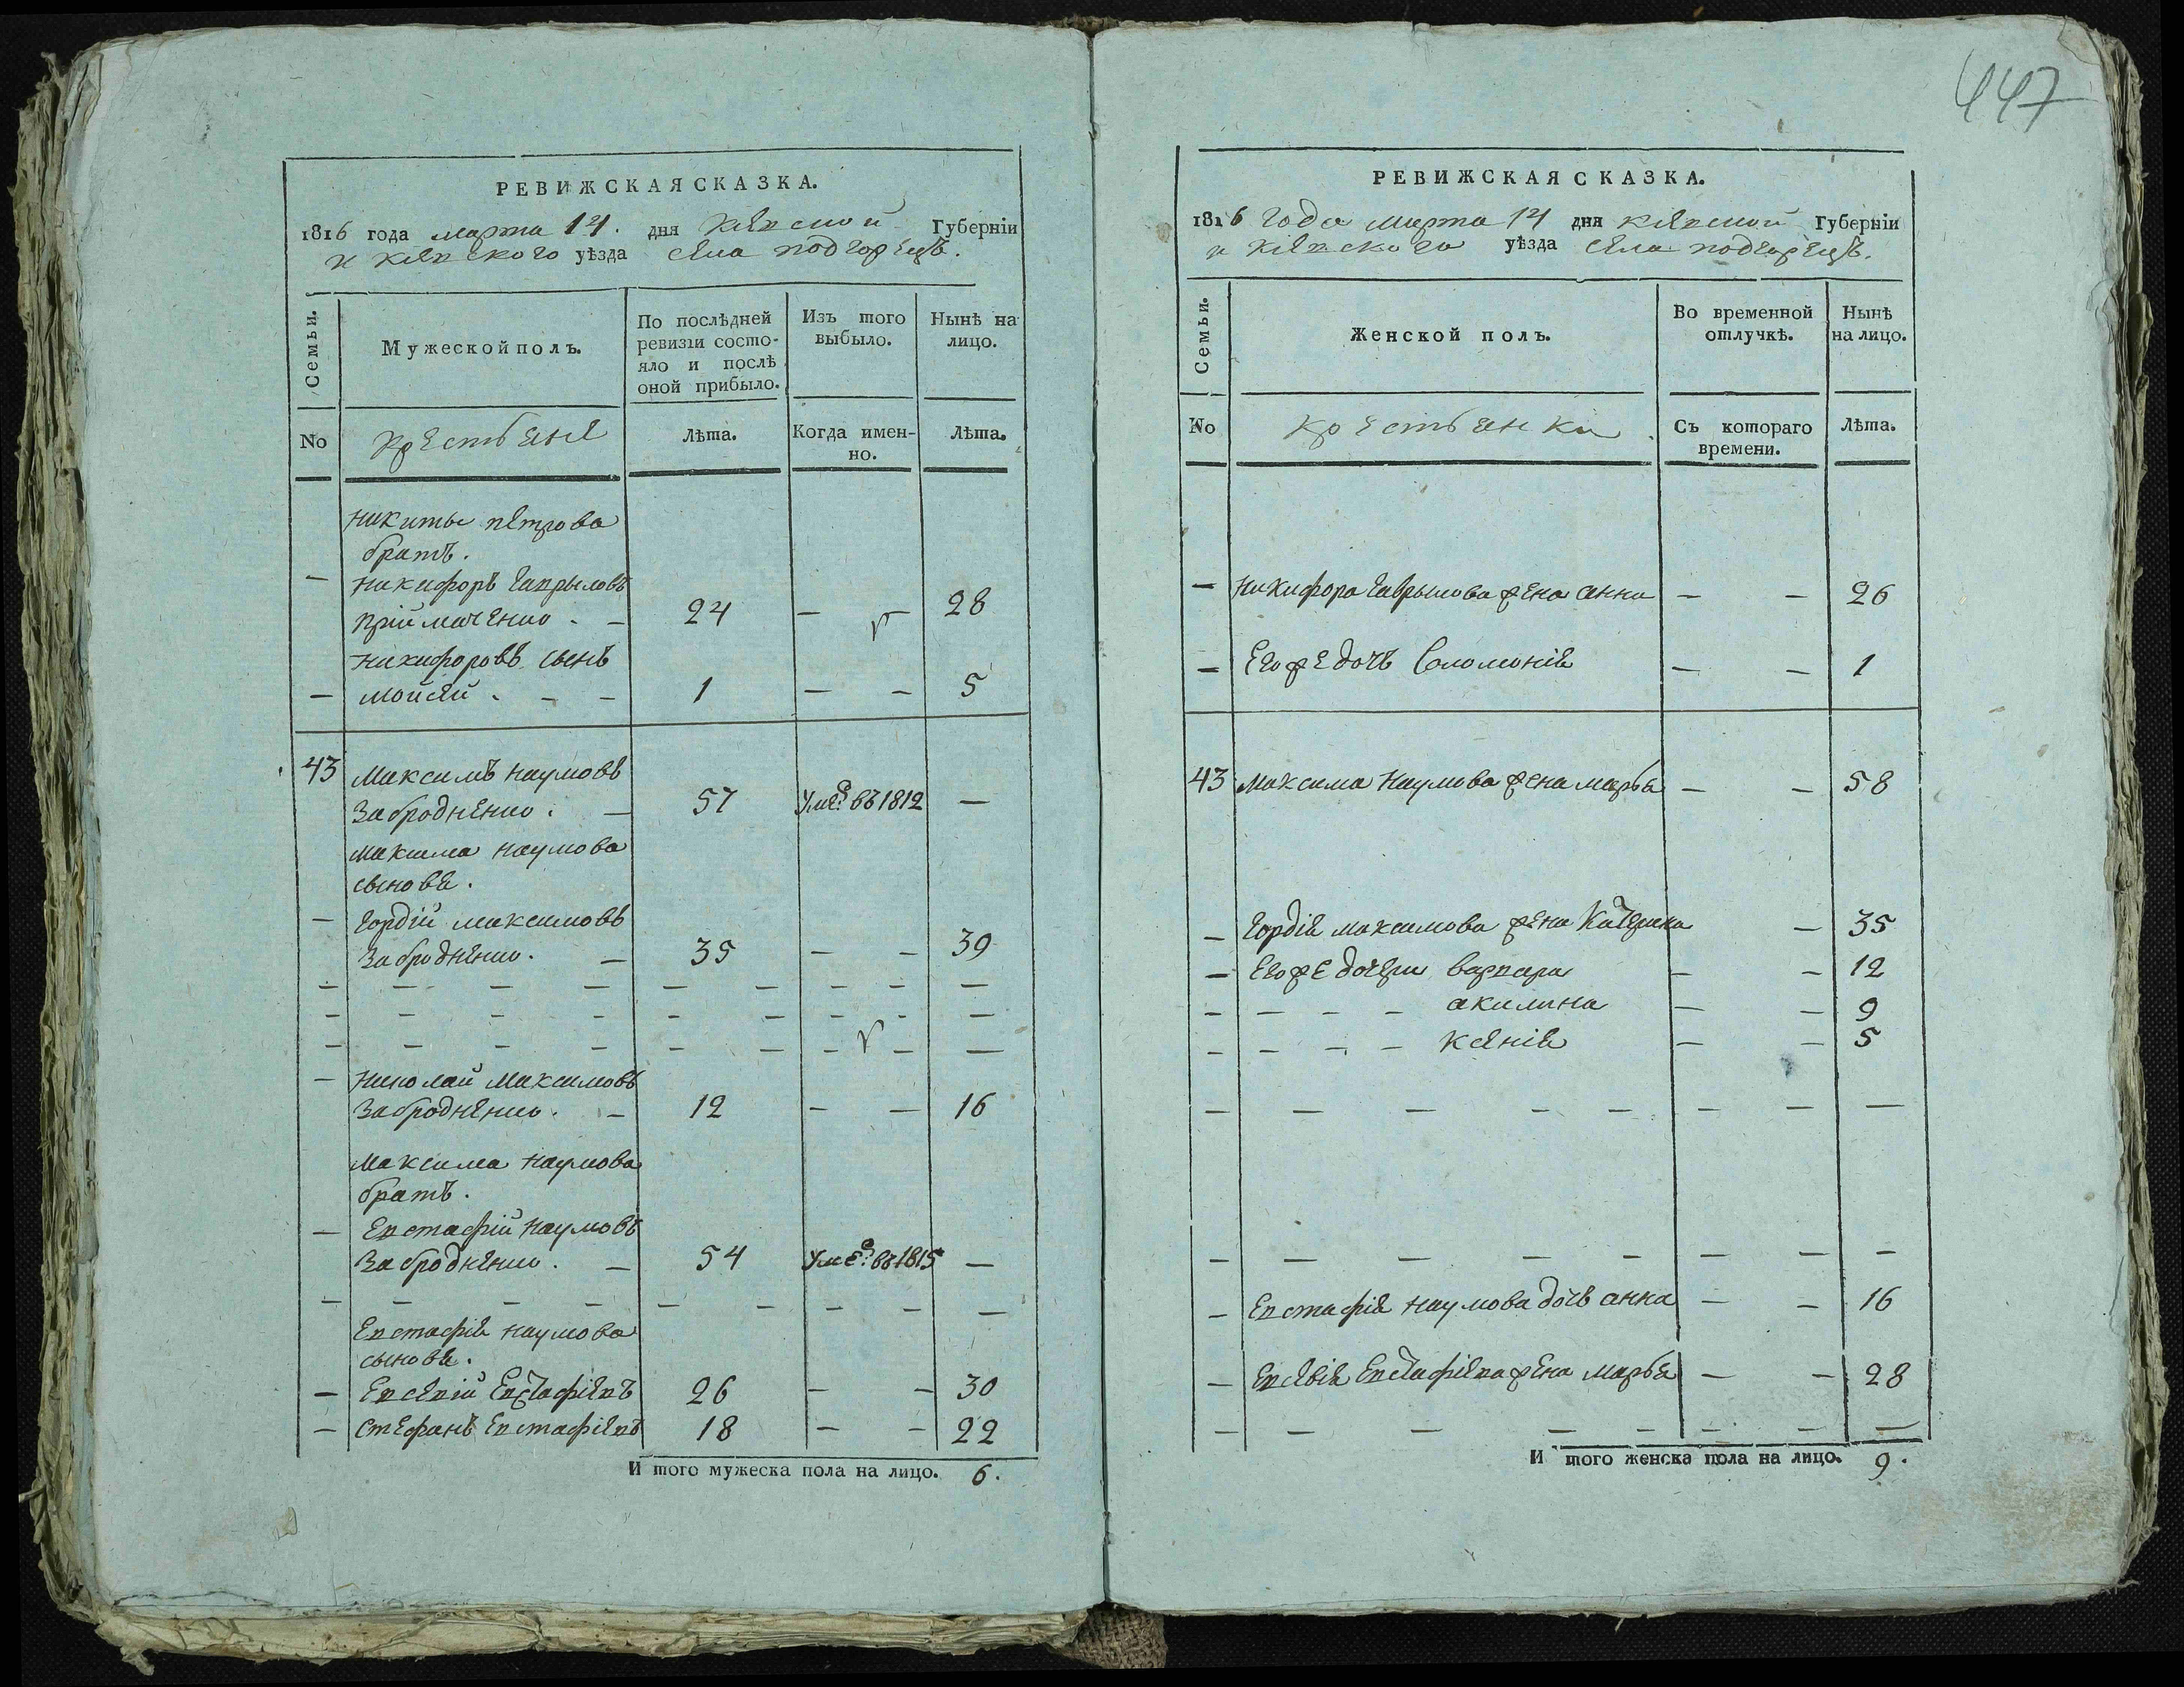 447
РЕВИЖСКАЯ СКАЗКА.
1816 года марта 14. дня Кіевской Губерніи
и Кіевского уѣзда села подгорецъ.
Семьи.
Мужеской полъ.
По послѣдней ревизіи состояло и послѣ оной прибыло.
Изъ того выбыло.
Нынѣ на лицо.
No
крестьяне
Лѣта.
Когда именно.
Лѣта.
никиты петрова
братъ.
— никифоръ гаврыловъ
пріймаченко . — 24 — — 28
никифоровъ сынъ
— мойсей . — — 1 — — 5
43 Максимъ наумовъ
Заброденко . — 57 Умре въ 1812 —
максима наумова
сынове.
— Гордій максимовъ
Заброденко . — 35 — — 39
— — — — — — — — — —
— — — — — — — — — —
— — — — — — — — — —
— николай Максимовъ
Заброденко . — 12 — — 16
Максима наумова
братъ.
— Евстафій наумовъ
Заброденко . — 54 Умре въ 1815 —
— — — — — — — — —
Евстафія наумова
сынове.
— Евсевій Евстафіевъ 26 — — 30
— Стефанъ Евстафіевъ 18 — — 22
И того мужеска пола на лицо. 6.
РЕВИЖСКАЯ СКАЗКА.
1816 года марта 14 дня кіевской Губерніи
и Кіевского уѣзда села подгорецъ.
Семьи.
Женской полъ.
Во временной отлучкѣ.
Нынѣ на лицо.
No
крестьянки
Съ котораго времени.
Лѣта.
— никифора гаврылова жена анна — — 26
— Его же дочь Соломонія — — 1
43 Максима Наумова жена марья — — 58
— Гордія максимова жена Катерина — 35
— Его же дочери варвара — — 12
— — — — акилина — — 9
— — — — ксенія — — 5
— — — — — — — —
— — — — — — — —
— Евстафія наумова дочь анна — — 16
— Евсевія Евстафіева жена марья — — 28
— — — — — — — —
И того женска пола на лицо. 9.